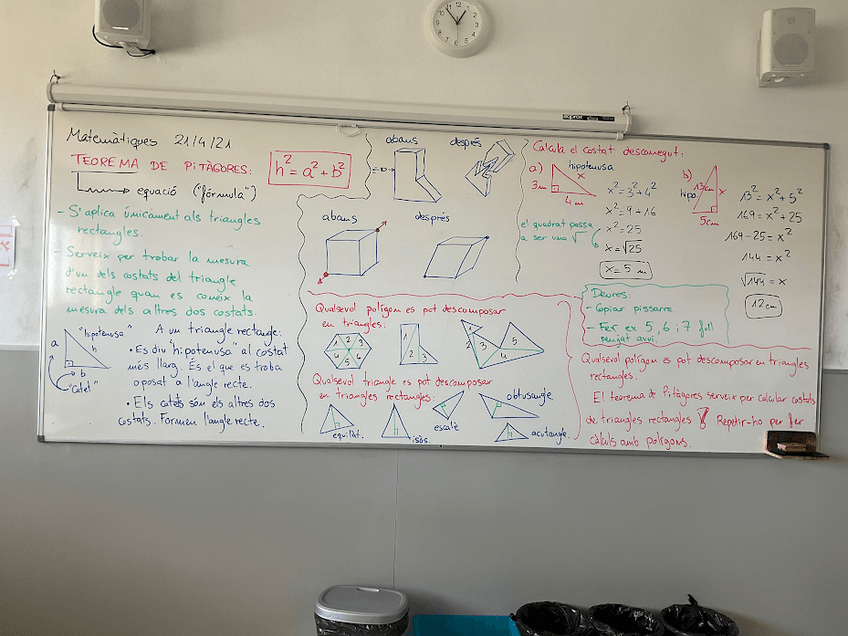 Matemàtiques 21/4/21
TEOREMA DE PITÀGORES:
h² = a² + b²
equació ("fórmula")
- S'aplica únicament als triangles
rectangles.
- Serveix per trobar la mesura
d'un dels costats del triangle
rectangle quan es coneix la
mesura dels altres dos costats.
"hipotenusa"
a
h
b
"catet"
A un triangle rectangle:
• Es diu "hipotenusa" al costat
més llarg. És el que es troba
oposat a l'angle recte.
• Els catets són els altres dos
costats. Formen l'angle recte.
abans després
abans després
Qualsevol polígon es pot descomposar
en triangles:
1 2 3
6 5 4
1 2 3
1 2 3 4 5
Qualsevol triangle es pot descomposar
en triangles rectangles:
equilàt.
isòs.
escalè
obtusangle
acutangle
Calcula el costat desconegut:
a) hipotenusa
x
3m
4m
x² = 3² + 4²
x² = 9 + 16
x² = 25
x = √25
x = 5 m
el quadrat passa
a ser una √
b)
hipo.
13cm
x
5cm
13² = x² + 5²
169 = x² + 25
169 - 25 = x²
144 = x²
√144 = x
12cm
Deures:
- Copiar pissarra.
- Fer ex 5, 6 i 7 full
penjat avui.
Qualsevol polígon es pot descomposar en triangles
rectangles.
El teorema de Pitàgores serveix per calcular costats
de triangles rectangles Repetir-ho per fer
càlculs amb polígons.